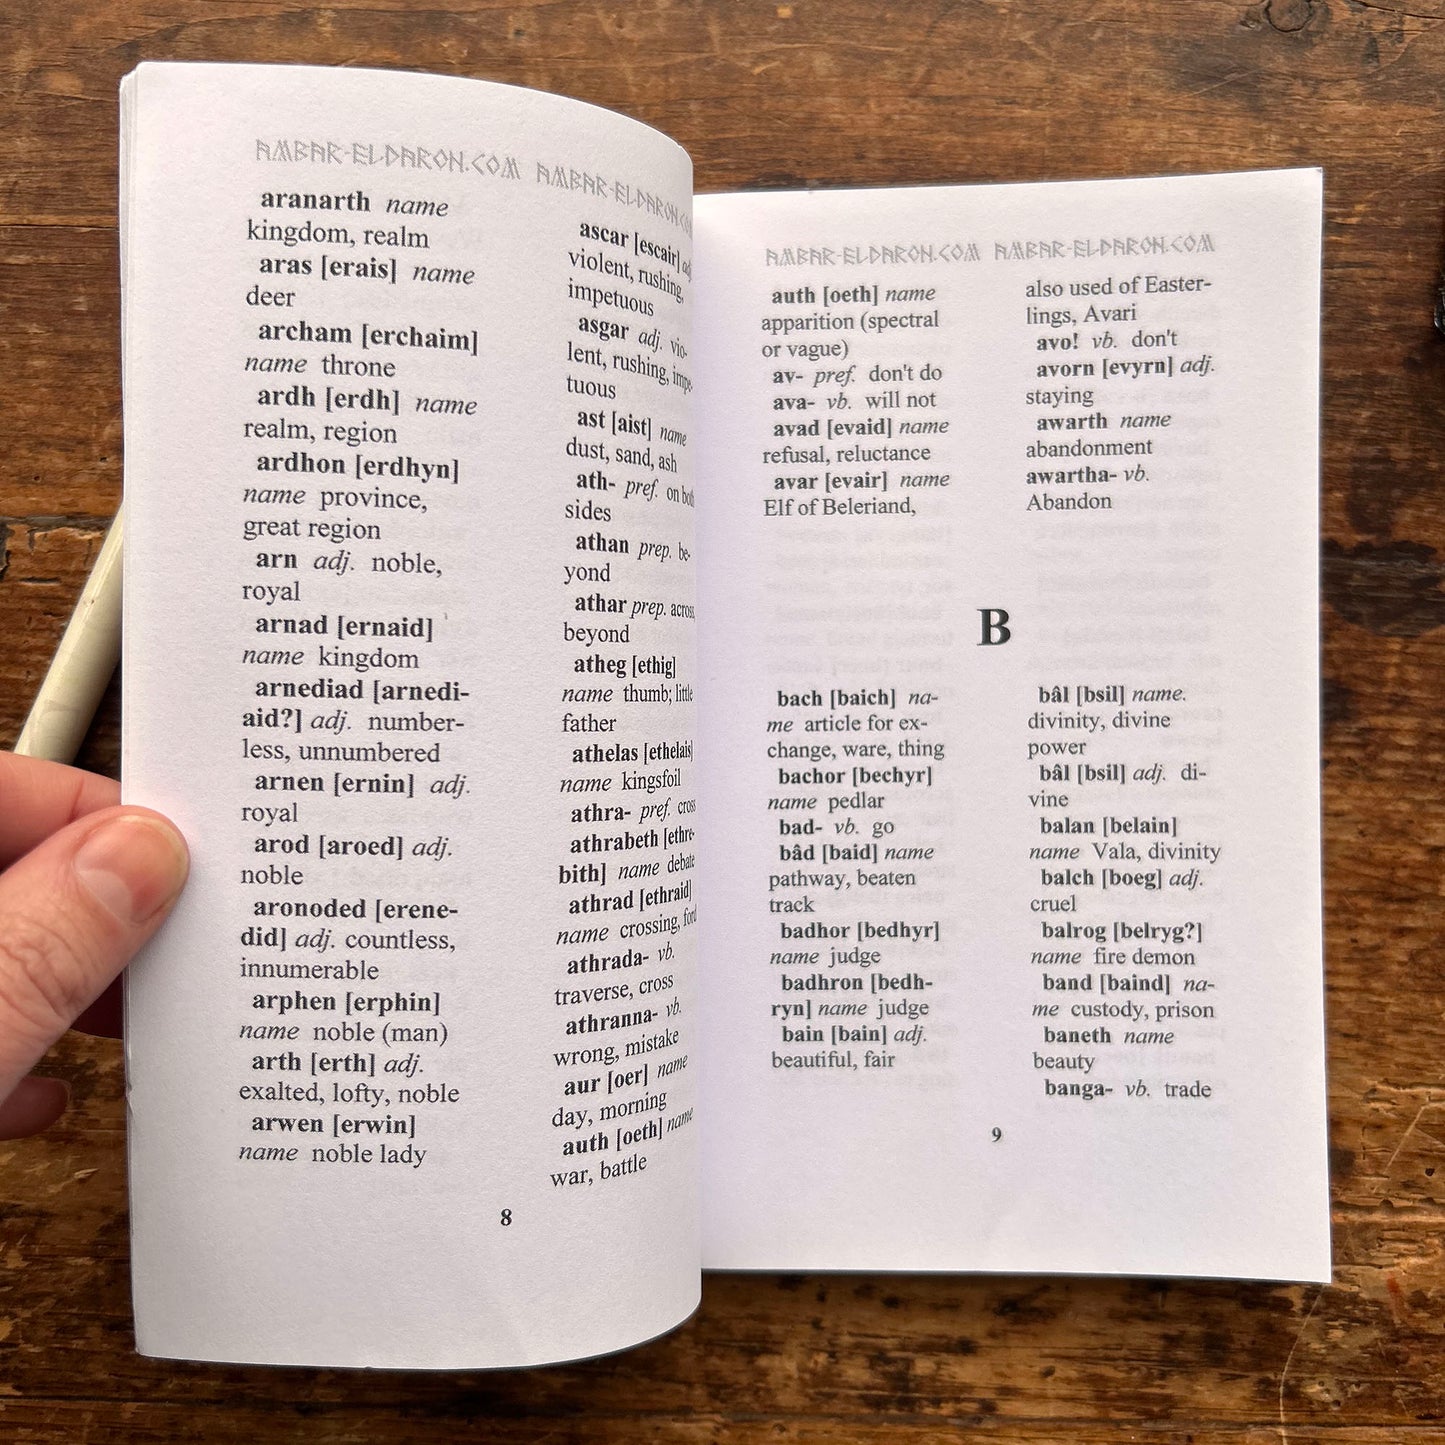 AMBAR-ELDARON.COM AMBAR-ELDARON.COM
aranarth name
kingdom, realm
aras [erais] name
deer
archam [erchaim]
name throne
ardh [erdh] name
realm, region
ardhon [erdhyn]
name province,
great region
arn adj. noble,
royal
arnad [ernaid]
name kingdom
arnediad [arnedi-
aid?] adj. number-
less, unnumbered
arnen [ernin] adj.
royal
arod [aroed] adj.
noble
aronoded [erene-
did] adj. countless,
innumerable
arphen [erphin]
name noble (man)
arth [erth] adj.
exalted, lofty, noble
arwen [erwin]
name noble lady
ascar [escair] adj
violent, rushing,
impetuous
asgar adj. vio-
lent, rushing, impe-
tuous
ast [aist] name
dust, sand, ash
ath- pref. on both
sides
athan prep. be-
yond
athar prep. across,
beyond
atheg [ethig]
name thumb; little
father
athelas [ethelais]
name kingsfoil
athra- pref. cross
athrabeth [ethre-
bith] name debate
athrad [ethraid]
name crossing, ford
athrada- vb.
traverse, cross
athranna- vb.
wrong, mistake
aur [oer] name
day, morning
auth [oeth] name
war, battle
8
AMBAR-ELDARON.COM AMBAR-ELDARON.COM
auth [oeth] name
apparition (spectral
or vague)
av- pref. don't do
ava- vb. will not
avad [evaid] name
refusal, reluctance
avar [evair] name
Elf of Beleriand,
also used of Easter-
lings, Avari
avo! vb. don't
avorn [evyrn] adj.
staying
awarth name
abandonment
awartha- vb.
Abandon
B
bach [baich] na-
me article for ex-
change, ware, thing
bachor [bechyr]
name pedlar
bad- vb. go
bâd [baid] name
pathway, beaten
track
badhor [bedhyr]
name judge
badhron [bedh-
ryn] name judge
bain [bain] adj.
beautiful, fair
bâl [bsil] name.
divinity, divine
power
bâl [bsil] adj. di-
vine
balan [belain]
name Vala, divinity
balch [boeg] adj.
cruel
balrog [belryg?]
name fire demon
band [baind] na-
me custody, prison
baneth name
beauty
banga- vb. trade
9